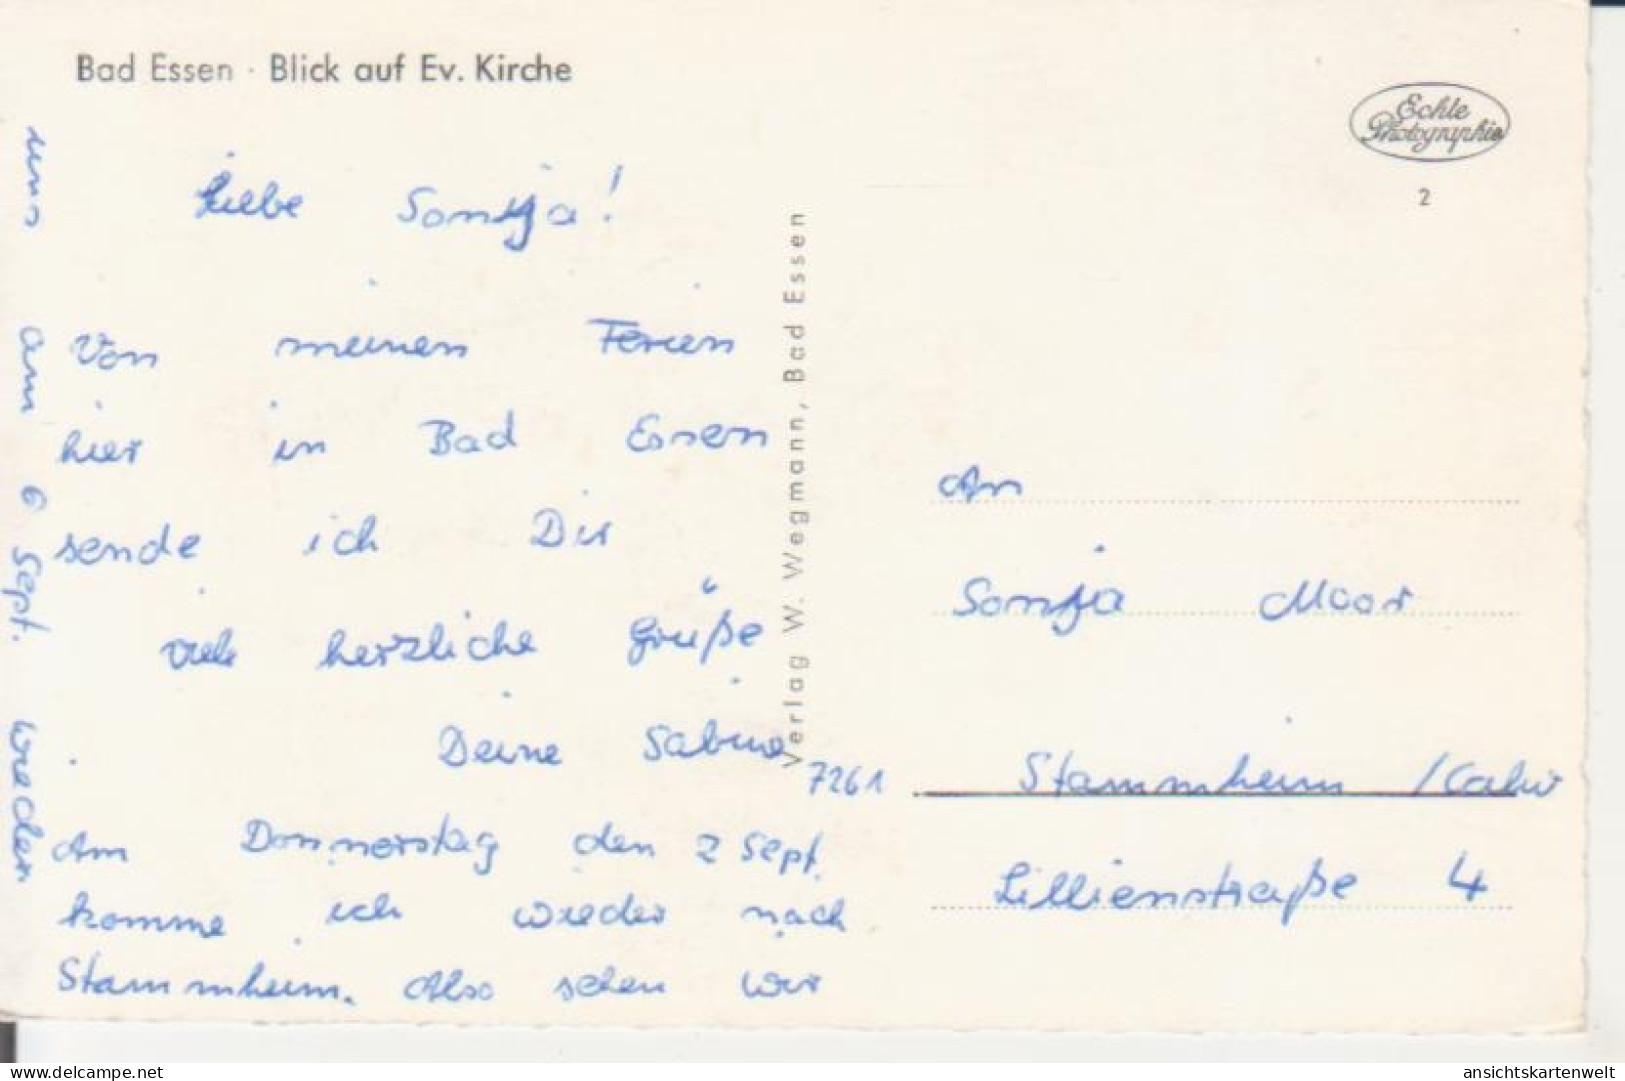 Bad Essen · Blick auf Ev. Kirche
Echte
Photographie
2
Liebe Sonja!
Von meinen Ferien
hier in Bad Essen
sende ich Dir
viele herzliche Grüße
Deine Sabine
Am Donnerstag den 2 Sept.
komme ich wieder nach
Stammheim. Also sehen wir
uns am 6 Sept. wieder.
Verlag W. Wegmann, Bad Essen
An
Sonja Moor
7261 Stammheim / Calw
Lillienstraße 4
Delcampe.net
ansichtskartenwelt